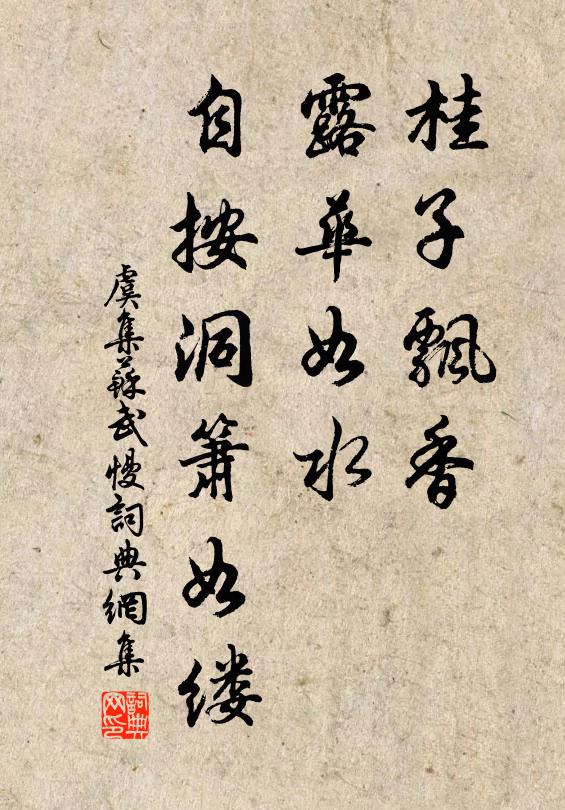 桂子飄香
露華如水
自按洞簫如縷
虞集蘇武慢詞典網集
詞典网印